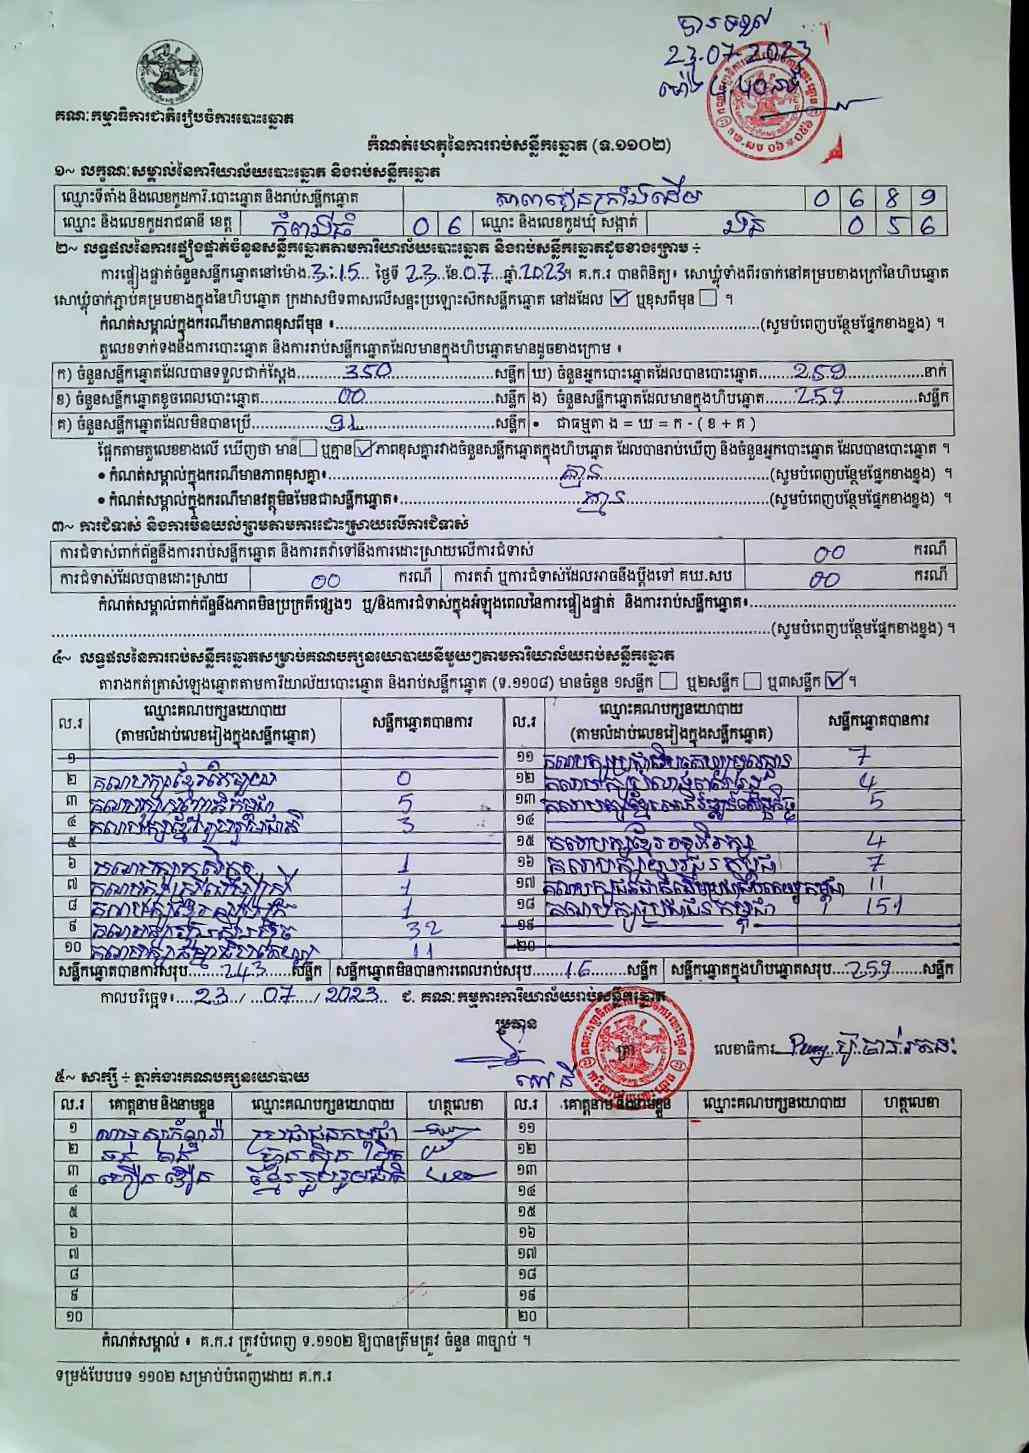 បានទទួល
23.07.2023
ម៉ោង 4:40 នាទី
គណៈកម្មាធិការជាតិរៀបចំការបោះឆ្នោត
កំណត់ហេតុនៃការរាប់សន្លឹកឆ្នោត (ទ.១១០២)
១~ លក្ខណៈសម្គាល់នៃការិយាល័យបោះឆ្នោត និងរាប់សន្លឹកឆ្នោត
ឈ្មោះទីតាំង និងលេខកូដការិ.បោះឆ្នោត និងរាប់សន្លឹកឆ្នោត សាលារៀនត្រាំងដើម 0 6 8 9
ឈ្មោះ និងលេខកូដរាជធានី ខេត្ត កំពង់ធំ 0 6 ឈ្មោះ និងលេខកូដឃុំ សង្កាត់ 0 5 6
២~ លទ្ធផលនៃការផ្ទៀងផ្ទាត់ចំនួនសន្លឹកឆ្នោតតាមការិយាល័យបោះឆ្នោត និងរាប់សន្លឹកឆ្នោតដូចខាងក្រោម ÷
ការផ្ទៀងផ្ទាត់ចំនួនសន្លឹកឆ្នោតនៅម៉ោង.3:15... ថ្ងៃទី 23.ខែ.07..ឆ្នាំ.2023។ គ.ក.រ បានពិនិត្យ៖ សោឃ្លុំទាំងពីរចាក់នៅគម្របខាងក្រៅនៃហិបឆ្នោត
សោឃ្លុំចាក់ភ្ជាប់គម្របខាងក្នុងនៃហិបឆ្នោត ក្រដាសបិទពាសលើសន្ទះប្រឡោះស៊កសន្លឹកឆ្នោត នៅដដែល ☑ ឬខុសពីមុន ☐ ។
កំណត់សម្គាល់ក្នុងករណីមានភាពខុសពីមុន ៖..........(សូមបំពេញបន្ថែមផ្នែកខាងខ្នង) ។
តួលេខទាក់ទងនឹងការបោះឆ្នោត និងការរាប់សន្លឹកឆ្នោតដែលមានក្នុងហិបឆ្នោតមានដូចខាងក្រោម ៖
ក) ចំនួនសន្លឹកឆ្នោតដែលបានទទួលជាក់ស្តែង........350........សន្លឹក ឃ) ចំនួនអ្នកបោះឆ្នោតដែលបានបោះឆ្នោត.......259........នាក់
ខ) ចំនួនសន្លឹកឆ្នោតខូចពេលបោះឆ្នោត........00........សន្លឹក ង) ចំនួនសន្លឹកឆ្នោតដែលមានក្នុងហិបឆ្នោត.......259........សន្លឹក
គ) ចំនួនសន្លឹកឆ្នោតដែលមិនបានប្រើ........91........សន្លឹក • ជាធម្មតា ង = ឃ = ក - ( ខ + គ )
ផ្អែកតាមតួលេខខាងលើ ឃើញថា មាន ☐ ឬគ្មាន ☑ ភាពខុសគ្នារវាងចំនួនសន្លឹកឆ្នោតក្នុងហិបឆ្នោត ដែលបានរាប់ឃើញ និងចំនួនអ្នកបោះឆ្នោត ដែលបានបោះឆ្នោត ។
• កំណត់សម្គាល់ក្នុងករណីមានភាពខុសគ្នា៖........គ្មាន........(សូមបំពេញបន្ថែមផ្នែកខាងខ្នង) ។
• កំណត់សម្គាល់ក្នុងករណីមានវត្ថុមិនមែនជាសន្លឹកឆ្នោត៖........គ្មាន........(សូមបំពេញបន្ថែមផ្នែកខាងខ្នង) ។
៣~ ការជំទាស់ និងការមិនយល់ព្រមតាមការដោះស្រាយលើការជំទាស់
ការជំទាស់ពាក់ព័ន្ធនឹងការរាប់សន្លឹកឆ្នោត និងការតវ៉ាទៅនឹងការដោះស្រាយលើការជំទាស់ 00 ករណី
ការជំទាស់ដែលបានដោះស្រាយ 00 ករណី ការតវ៉ា ឬការជំទាស់ដែលអាចនឹងប្តឹងទៅ គឃ.សប 00 ករណី
កំណត់សម្គាល់ពាក់ព័ន្ធនឹងភាពមិនប្រក្រតីផ្សេងៗ ឬ/និងការជំទាស់ក្នុងអំឡុងពេលនៃការផ្ទៀងផ្ទាត់ និងការរាប់សន្លឹកឆ្នោត៖..........
..........(សូមបំពេញបន្ថែមផ្នែកខាងខ្នង) ។
៤~ លទ្ធផលនៃការរាប់សន្លឹកឆ្នោតសម្រាប់គណបក្សនយោបាយនីមួយៗតាមការិយាល័យរាប់សន្លឹកឆ្នោត
តារាងកត់ត្រាសំឡេងឆ្នោតតាមការិយាល័យបោះឆ្នោត និងរាប់សន្លឹកឆ្នោត (ទ.១១០៨) មានចំនួន ១សន្លឹក ☐ ឬ២សន្លឹក ☐ ឬ៣សន្លឹក ☑ ។
ល.រ ឈ្មោះគណបក្សនយោបាយ (តាមលំដាប់លេខរៀងក្នុងសន្លឹកឆ្នោត) សន្លឹកឆ្នោតបានការ ល.រ ឈ្មោះគណបក្សនយោបាយ (តាមលំដាប់លេខរៀងក្នុងសន្លឹកឆ្នោត) សន្លឹកឆ្នោតបានការ
១ ១១ 7
២ 0 ១២ 4
៣ 5 ១៣ 5
៤ គណបក្សខ្មែររួបរួមជាតិ 3 ១៤
៥ ១៥ គណបក្សខ្មែរអភិរក្ស 4
៦ 1 ១៦ គណបក្សយុវជនកម្ពុជា 7
៧ 1 ១៧ 11
៨ 1 ១៨ គណបក្សប្រជាជនកម្ពុជា 151
៩ គណបក្សហ៊្វុនស៊ិនប៉ិច 32 ១៩
១០ 11 ២០
សន្លឹកឆ្នោតបានការសរុប.....243.....សន្លឹក សន្លឹកឆ្នោតមិនបានការពេលរាប់សរុប.......16.......សន្លឹក សន្លឹកឆ្នោតក្នុងហិបឆ្នោតសរុប...259......សន្លឹក
កាលបរិច្ឆេទ៖....23../...07..../.2023.. ជ. គណៈកម្មការការិយាល័យរាប់សន្លឹកឆ្នោត
ប្រធាន
ត្រា
លេខាធិការ
៥~ សាក្សី ÷ ភ្នាក់ងារគណបក្សនយោបាយ
ល.រ គោត្តនាម និងនាមខ្លួន ឈ្មោះគណបក្សនយោបាយ ហត្ថលេខា ល.រ គោត្តនាម និងនាមខ្លួន ឈ្មោះគណបក្សនយោបាយ ហត្ថលេខា
១ ប្រជាជនកម្ពុជា ១១
២ ហ៊្វុនស៊ិនប៉ិច ១២
៣ ខ្មែររួបរួមជាតិ ១៣
៤ ១៤
៥ ១៥
៦ ១៦
៧ ១៧
៨ ១៨
៩ ១៩
១០ ២០
កំណត់សម្គាល់ ៖ គ.ក.រ ត្រូវបំពេញ ទ.១១០២ ឱ្យបានត្រឹមត្រូវ ចំនួន ៣ច្បាប់ ។
ទម្រង់បែបបទ ១១០២ សម្រាប់បំពេញដោយ គ.ក.រ